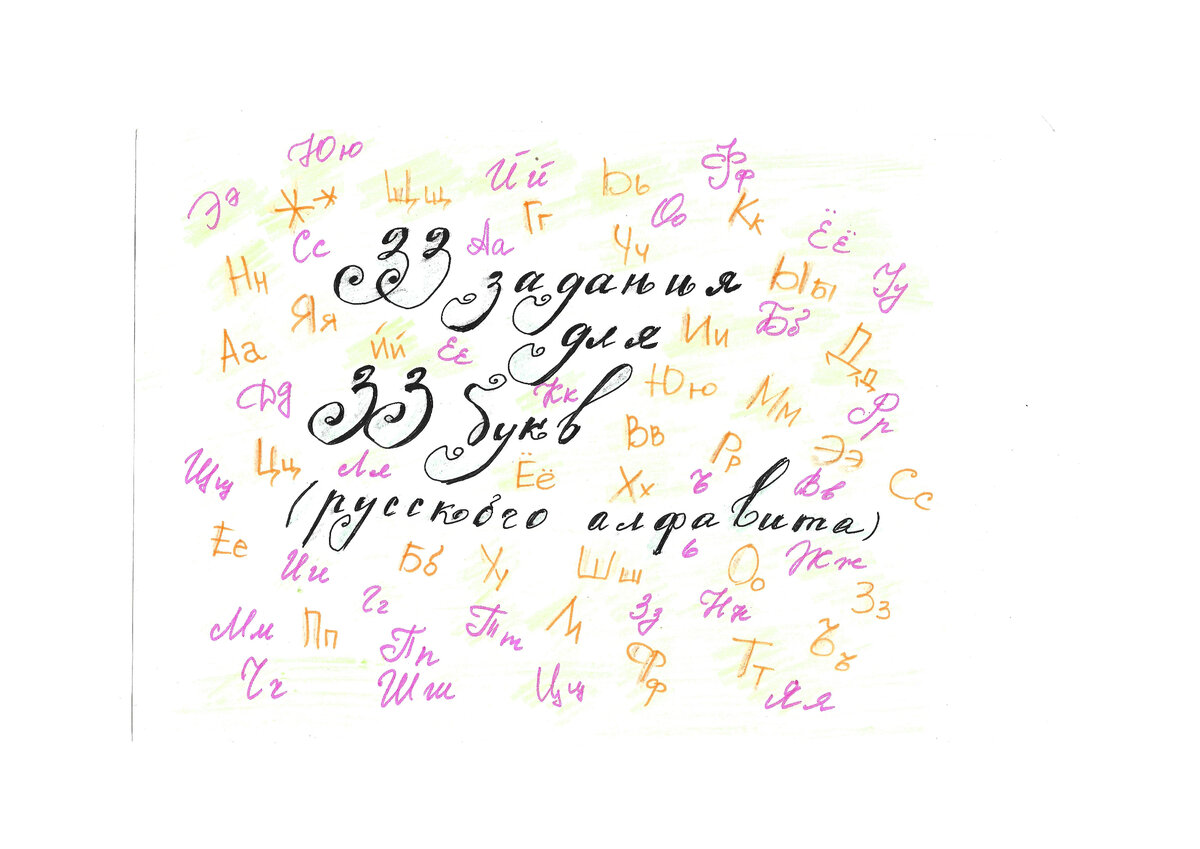 Юю
Ээ Жж Щщ Йй Ьь Фф
Сс Аа Гг Чч Оо Кк Ёё
33 задания
Нн Яя Ыы Уу
для
Аа Йй Ее Ии Бб Дд
33 букв
Дд Кк Юю Мм Рр
Щщ Цц Лл Ёё Вв Хх Рр ъ Ээ Вв Сс
(русского алфавита)
Ее Ии Бб Уу Шш ь Оо Жж
Мм Пп Гг Тт Л Зз Нн Зз
Чч Пп Шш Цц Фф Тт Яя Ъъ